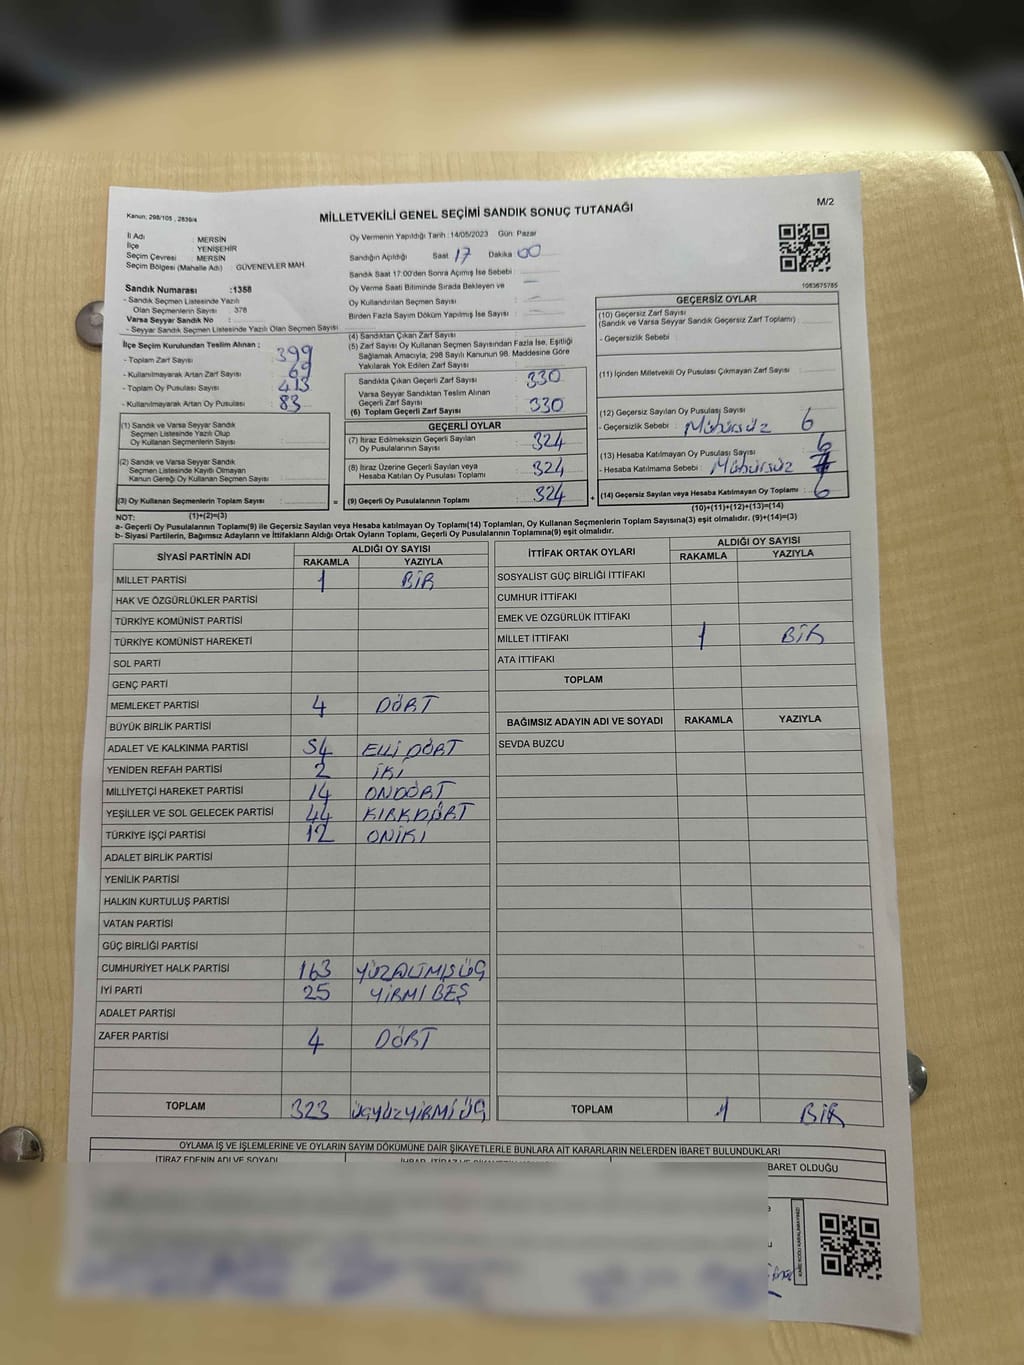 M/2
Kanun; 298/105 , 2839/4
MİLLETVEKİLİ GENEL SEÇİMİ SANDIK SONUÇ TUTANAĞI
İl Adı : MERSİN
İlçe : YENİŞEHİR
Seçim Çevresi : MERSİN
Seçim Bölgesi (Mahalle Adı) : GÜVENEVLER MAH.
Oy Vermenin Yapıldığı Tarih :14/05/2023 Gün: Pazar
Sandığın Açıldığı Saat 17 Dakika 00
Sandık Saat 17:00'den Sonra Açımış İse Sebebi :
Oy Verme Saati Bitiminde Sırada Bekleyen ve
Oy Kullandırılan Seçmen Sayısı :
Birden Fazla Sayım Döküm Yapılmış İse Sayısı :
1083675785
Sandık Numarası :1358
- Sandık Seçmen Listesinde Yazılı
Olan Seçmenlerin Sayısı : 378
Varsa Seyyar Sandık No :
- Seyyar Sandık Seçmen Listesinde Yazılı Olan Seçmen Sayısı :
İlçe Seçim Kurulundan Teslim Alınan ;
- Toplam Zarf Sayısı : 399
- Kullanılmayarak Artan Zarf Sayısı : 69
- Toplam Oy Pusulası Sayısı : 413
- Kullanılmayarak Artan Oy Pusulası : 83
(1) Sandık ve Varsa Seyyar Sandık
Seçmen Listesinde Yazılı Olup
Oy Kullanan Seçmenlerin Sayısı :
(2) Sandık ve Varsa Seyyar Sandık
Seçmen Listesinde Kayıtlı Olmayan
Kanun Gereği Oy Kullanan Seçmen Sayısı :
(3) Oy Kullanan Seçmenlerin Toplam Sayısı :
(1)+(2)=(3)
(4) Sandıktan Çıkan Zarf Sayısı :
(5) Zarf Sayısı Oy Kullanan Seçmen Sayısından Fazla İse, Eşitliği
Sağlamak Amacıyla, 298 Sayılı Kanunun 98. Maddesine Göre
Yakılarak Yok Edilen Zarf Sayısı :
Sandıkta Çıkan Geçerli Zarf Sayısı : 330
Varsa Seyyar Sandıktan Teslim Alınan
Geçerli Zarf Sayısı :
(6) Toplam Geçerli Zarf Sayısı : 330
GEÇERLİ OYLAR
(7) İtiraz Edilmeksizin Geçerli Sayılan
Oy Pusulalarının Sayısı : 324
(8) İtiraz Üzerine Geçerli Sayılan veya
Hesaba Katılan Oy Pusulası Toplamı : 324
= (9) Geçerli Oy Pusulalarının Toplamı : 324 +
GEÇERSİZ OYLAR
(10) Geçersiz Zarf Sayısı
(Sandık ve Varsa Seyyar Sandık Geçersiz Zarf Toplamı) :
- Geçersizlik Sebebi :
(11) İçinden Milletvekili Oy Pusulası Çıkmayan Zarf Sayısı :
(12) Geçersiz Sayılan Oy Pusulası Sayısı
- Geçersizlik Sebebi : Mühürsüz 6
(13) Hesaba Katılmayan Oy Pusulası Sayısı : 6
- Hesaba Katılmama Sebebi : Mühürsüz
(14) Geçersiz Sayılan veya Hesaba Katılmayan Oy Toplamı : 6
(10)+(11)+(12)+(13)=(14)
NOT:
a- Geçerli Oy Pusulalarının Toplamı(9) ile Geçersiz Sayılan veya Hesaba katılmayan Oy Toplamı(14) Toplamları, Oy Kullanan Seçmenlerin Toplam Sayısına(3) eşit olmalıdır. (9)+(14)=(3)
b- Siyasi Partilerin, Bağımsız Adayların ve İttifakların Aldığı Ortak Oyların Toplamı, Geçerli Oy Pusulalarının Toplamına(9) eşit olmalıdır.
SİYASİ PARTİNİN ADI ALDIĞI OY SAYISI
RAKAMLA YAZIYLA
MİLLET PARTİSİ 1 BİR
HAK VE ÖZGÜRLÜKLER PARTİSİ
TÜRKİYE KOMÜNİST PARTİSİ
TÜRKİYE KOMÜNİST HAREKETİ
SOL PARTİ
GENÇ PARTİ
MEMLEKET PARTİSİ 4 DÖRT
BÜYÜK BİRLİK PARTİSİ
ADALET VE KALKINMA PARTİSİ 54 ELLİ DÖRT
YENİDEN REFAH PARTİSİ 2 İKİ
MİLLİYETÇİ HAREKET PARTİSİ 14 ONDÖRT
YEŞİLLER VE SOL GELECEK PARTİSİ 44 KIRKDÖRT
TÜRKİYE İŞÇİ PARTİSİ 12 ONİKİ
ADALET BİRLİK PARTİSİ
YENİLİK PARTİSİ
HALKIN KURTULUŞ PARTİSİ
VATAN PARTİSİ
GÜÇ BİRLİĞİ PARTİSİ
CUMHURİYET HALK PARTİSİ 163 YÜZALTMIŞÜÇ
İYİ PARTİ 25 YİRMİ BEŞ
ADALET PARTİSİ
ZAFER PARTİSİ 4 DÖRT
TOPLAM 323 ÜÇYÜZYİRMİÜÇ
İTTİFAK ORTAK OYLARI ALDIĞI OY SAYISI
RAKAMLA YAZIYLA
SOSYALİST GÜÇ BİRLİĞİ İTTİFAKI
CUMHUR İTTİFAKI
EMEK VE ÖZGÜRLÜK İTTİFAKI
MİLLET İTTİFAKI 1 BİR
ATA İTTİFAKI
TOPLAM
BAĞIMSIZ ADAYIN ADI VE SOYADI RAKAMLA YAZIYLA
SEVDA BUZCU
TOPLAM 1 BİR
OYLAMA İŞ VE İŞLEMLERİNE VE OYLARIN SAYIM DÖKÜMÜNE DAİR ŞİKAYETLERLE BUNLARA AİT KARARLARIN NELERDEN İBARET BULUNDUKLARI
İTİRAZ EDENİN ADI VE SOYADI
BARET OLDUĞU